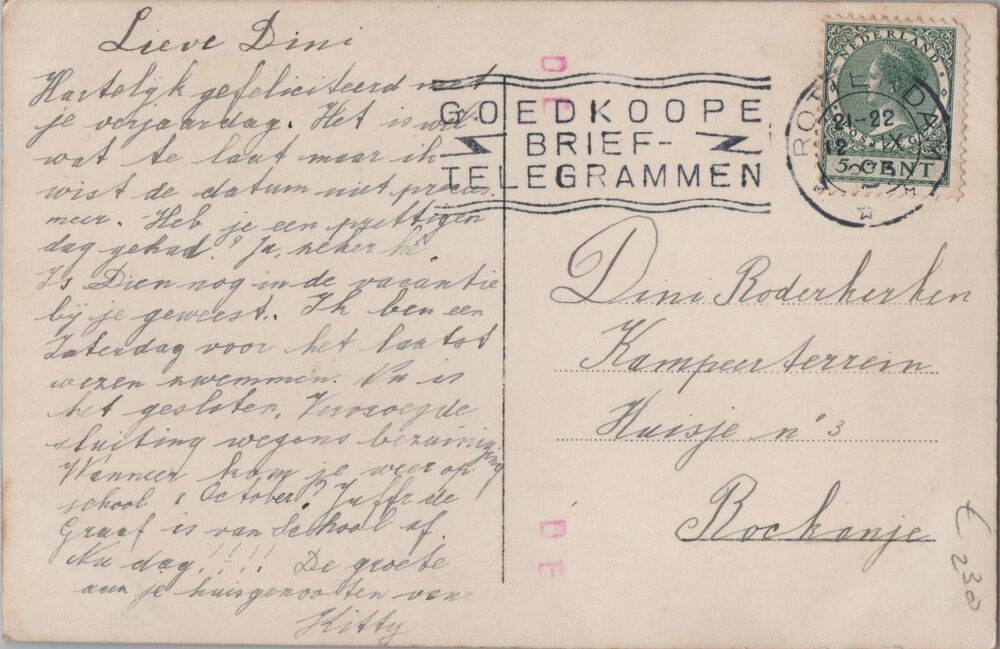 Lieve Dini
Hartelijk gefeliciteerd met
je verjaardag. Het is wel
wat te laat maar ik
wist de datum niet precies
meer. Heb je een prettigen
dag gehad? Ja, zeker hè.
Is Dien nog in de vacantie
bij je geweest. Ik ben een
Zaterdag voor het laatst
wezen zwemmen. Nu is
het gesloten. Vervroegde
sluiting wegens bezuiniging
Wanneer kom je weer op
school 1 October? Juffr de
Graaf is van School af.
Nu dag!!!! De groete
aan je huisgenooten van
Kitty
GOEDKOOPE
BRIEF-
TELEGRAMMEN
NEDERLAND
POSTZEGEL
5 CENT
ROTTERDAM
21-22
12 IX
DE
DE
Dini Roderkerken
Kampeerterrein
Huisje no 3
Rockanje
€ 230